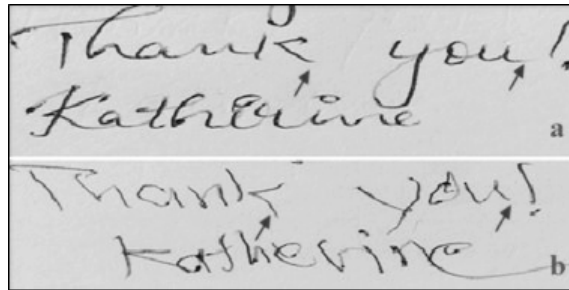 Thank you!
Katherine
a
Thank you!
Katherine
b